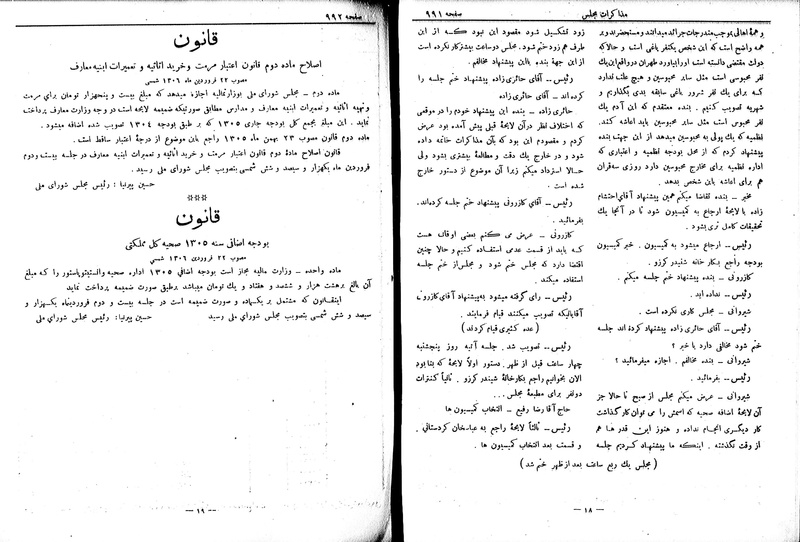 مذاکرات مجلس
صفحه ۹۹۱
و همهٔ اهالی بموجب مندرجات جرائد میدانند و مستحضرند و بر
همه واضح است که این شخص یکنفر یاغی است و حالا که
دولت مقتضی دانسته است او را بیاورد طهران در واقع این یک
نفر محبوسی است مثل سایر محبوسین و هیچ علت ندارد
که برای یک نفر شرور یاغی سابقه بدی بگذاریم و
شهریه تصویب کنیم . بنده معتقدم که این آدم یک
نفر محبوسی است مثل سایر محبوسین باید اعاشه کند.
نظمیه که یک پولی به محبوسین میدهد از این جهت بنده
پیشنهاد کردم که از محل بودجه نظمیه و اعتباری که
اداره نظمیه برای مخارج محبوسین دارد روزی سه قران
هم برای اعاشه باین شخص بدهد .
مخبر – بنده تقاضا میکنم همین پیشنهاد آقای احتشام
زاده با لایحهٔ ارجاع به کمیسیون شود تا در آنجا یک
تحقیقات کامل تری بشود .
رئیس – ارجاع میشود به کمیسیون . خبر کمیسیون
بودجه راجع بکار خانه شنیدر کرزو .
کازرونی – بنده پیشنهاد ختم جلسه میکنم .
رئیس – نداده اید .
شیروانی – مجلس کاری نکرده است .
رئیس – آقای حائری زاده پیشنهاد کرده اند جلسه
ختم شود مخالفی دارد یا خیر ؟
شیروانی – بنده مخالفم . اجازه میفرمائید ؟
رئیس – بفرمائید .
شیروانی – عرض میکنم مجلس از صبح تا حالا جز
آن لایحهٔ اضافه صحیه که اسمش را می توان کار گذاشت
کار دیگری انجام نداده و هنوز این قدر ها هم
از وقت نگذشته . اینکه ما پیشنهاد کردیم جلسه
زود تشکیل شود مقصود این نبود که از این
طرف هم زود ختم شود . مجلس دو ساعت بیشتر کار نکرده است
از این جهة بنده باین پیشنهاد مخالفم .
رئیس – آقای حائری زاده پیشنهاد ختم جلسه را
کرده اند . آقای حائری زاده
حائری زاده – بنده این پیشنهاد خودم را در موقعی
که اختلاف نظر در آن لایحهٔ قبل پیش آمده بود عرض
کردم و مقصودم این بود که بآن مذاکرات خاتمه داده
شود و در خارج یک دقت و مطالعهٔ بیشتری بشود ولی
حالا استرداد میکنم زیرا آن موضوع از دستور خارج
شده است .
رئیس – آقای کازرونی پیشنهاد ختم جلسه کرده‌اند.
بفرمائید .
کازرونی – عرض می کنم بعضی اوقات هست
که باید از قسمت عمدی استفاده کنیم و حالا چنین
اقتضا دارد که مجلس ختم شود و مجلس از ختم جلسه
استفاده میکند .
رئیس – رای گرفته میشود به پیشنهاد آقای کازرونی
آقایانیکه تصویب میکنند قیام فرمایند .
( عده کثیری قیام کردند )
رئیس – تصویب شد . جلسه آتیه روز پنجشنبه
چهار ساعت قبل از ظهر . دستور اولاً لایحهٔ که بنا بود
الان بخوانیم راجع بکارخانهٔ شنیدر کرزو . ثانیاً کنترات
دولفر برای مطبعهٔ مجلس . . .
حاج آقا رضا رفیع – انتخاب کمیسیون ها
رئیس – ثالثاً لایحهٔ راجع به عباسخان کردستانی .
و قسمت بعد انتخاب کمیسیون ها .
( مجلس یک ربع ساعت بعد از ظهر ختم شد )
– ۱۸ –
صفحه ۹۹۲
قانون
اصلاح ماده دوم قانون اعتبار مرمت و خرید اثاثیه و تعمیرات ابنیه معارف
مصوب ۲۲ فروردین ماه ۱۳۰۶ شمسی
ماده دوم – مجلس شورای ملی بوزارت مالیه اجازه میدهد که مبلغ بیست و پنجهزار تومان برای مرمت
و تهیه اثاثیه و تعمیرات ابنیه معارف و مدارس مطابق صورتیکه ضمیمه لایحه است در وجه وزارت معارف پرداخت
نماید . این مبلغ بجمع کل بودجه جاری ۱۳۰۵ که بر طبق بودجه ۱۳۰۴ تصویب شده اضافه میشود .
ماده دوم قانون مصوب ۲۳ بهمن ماه ۱۳۰۵ راجع باین موضوع از درجهٔ اعتبار ساقط است .
قانون اصلاح مادهٔ دوم قانون اعتبار مرمت و خرید اثاثیه و تعمیرات ابنیه معارف در جلسه بیست و دوم
فروردین ماه یکهزار و سیصد و شش شمسی بتصویب مجلس شورای ملی رسید .
حسین پیرنیا : رئیس مجلس شورای ملی
***
قانون
بودجه اضافی سنه ۱۳۰۵ صحیه کل مملکتی
مصوب ۲۲ فروردین ماه ۱۳۰۶ شمسی
ماده واحده – وزارت مالیه مجاز است بودجه اضافی ۱۳۰۵ اداره صحیه و انستیتو پاستور را که مبلغ
آن بالغ بر هشت هزار و ششصد و هفتاد و یک تومان میباشد بر طبق صورت ضمیمه پرداخت نماید
اینقانون که مشتمل بر یکماده و صورت ضمیمه است در جلسه بیست و دوم فروردینماه یکهزار و
سیصد و شش شمسی بتصویب مجلس شورای ملی رسید
حسین پیرنیا : رئیس مجلس شورای ملی
– ۱۹ –